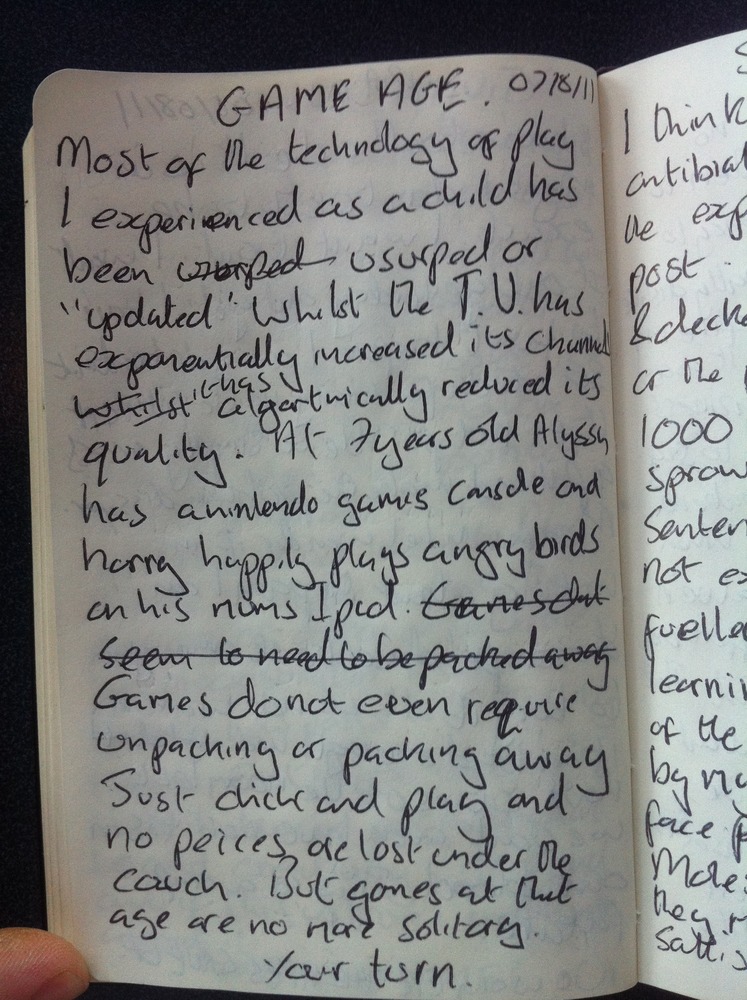 GAME AGE. 07/8/11
Most of the technology of play
I experienced as a child has
been usurped or
"updated" Whilst the T.V. has
exponentially increased its channel
whilst it has algortmically reduced its
quality. At 7years old Alyssa
has a nintendo games console and
harry happily plays angry birds
on his mums Ipad. Games dont
seem to need to be packed away
Games do not even require
unpacking or packing away
Just click and play and
no peices are lost under the
couch. But games at that
age are no more solitary.
Your turn.
I think
antibiat
the exp
post.
&decke
or the
1000
sprow
Senten
not ex
fuelle
learnin
of the
by my
face p
Moles
they
Sattis